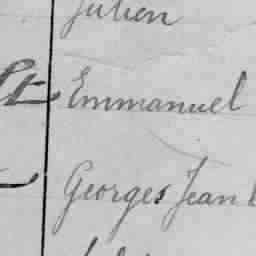 Julien
Emmanuel
Georges Jean